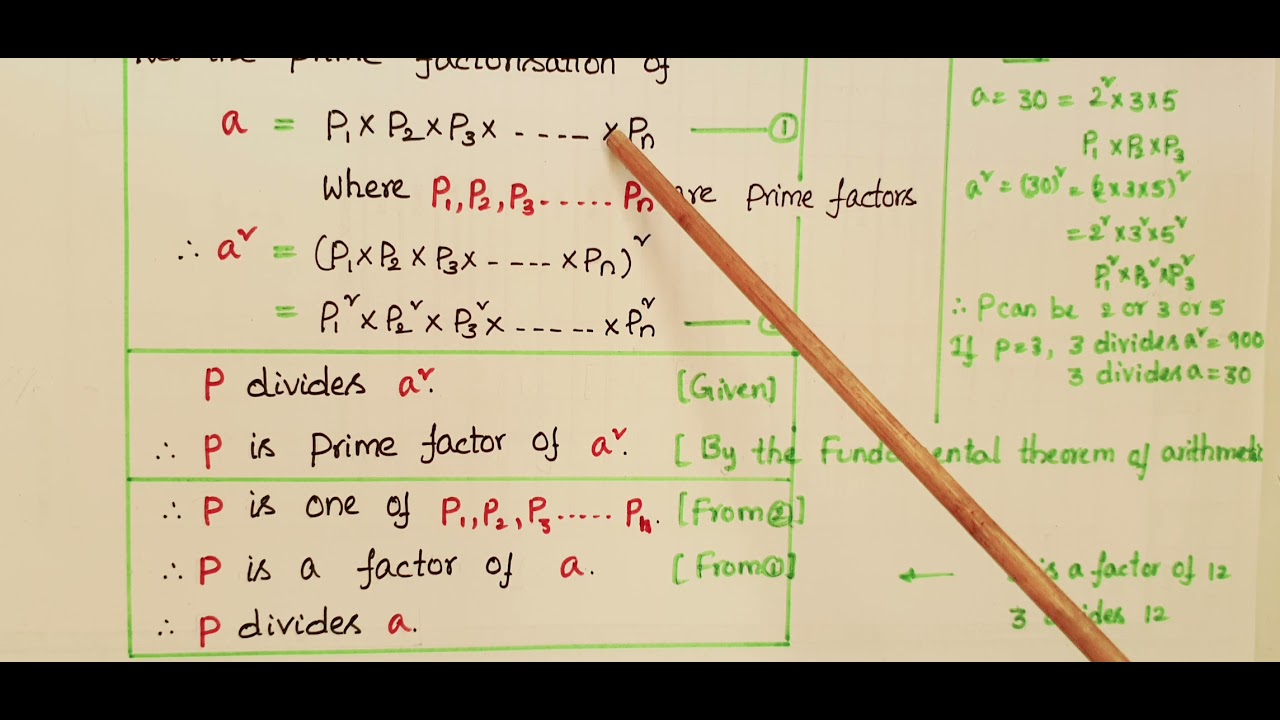 Let the prime factorisation of
a = P₁ × P₂ × P₃ × ..... × Pₙ ——— ①
Where P₁, P₂, P₃ ...... Pₙ are prime factors
∴ a² = (P₁ × P₂ × P₃ × ..... × Pₙ)²
= P₁² × P₂² × P₃² × ..... × Pₙ² ———
P divides a². [Given]
∴ P is Prime factor of a². [By the Fundamental theorem of arithmetic
∴ P is one of P₁, P₂, P₃ ..... Pₙ. [From ②]
∴ P is a factor of a. [From ①]
∴ P divides a.
a = 30 = 2² × 3 × 5
P₁ × P₂ × P₃
a² = (30)² = (2 × 3 × 5)²
= 2² × 3² × 5²
P₁² × P₂² × P₃²
∴ P can be 2 or 3 or 5
If P = 3, 3 divides a² = 900
3 divides a = 30
← is a factor of 12
3 divides 12